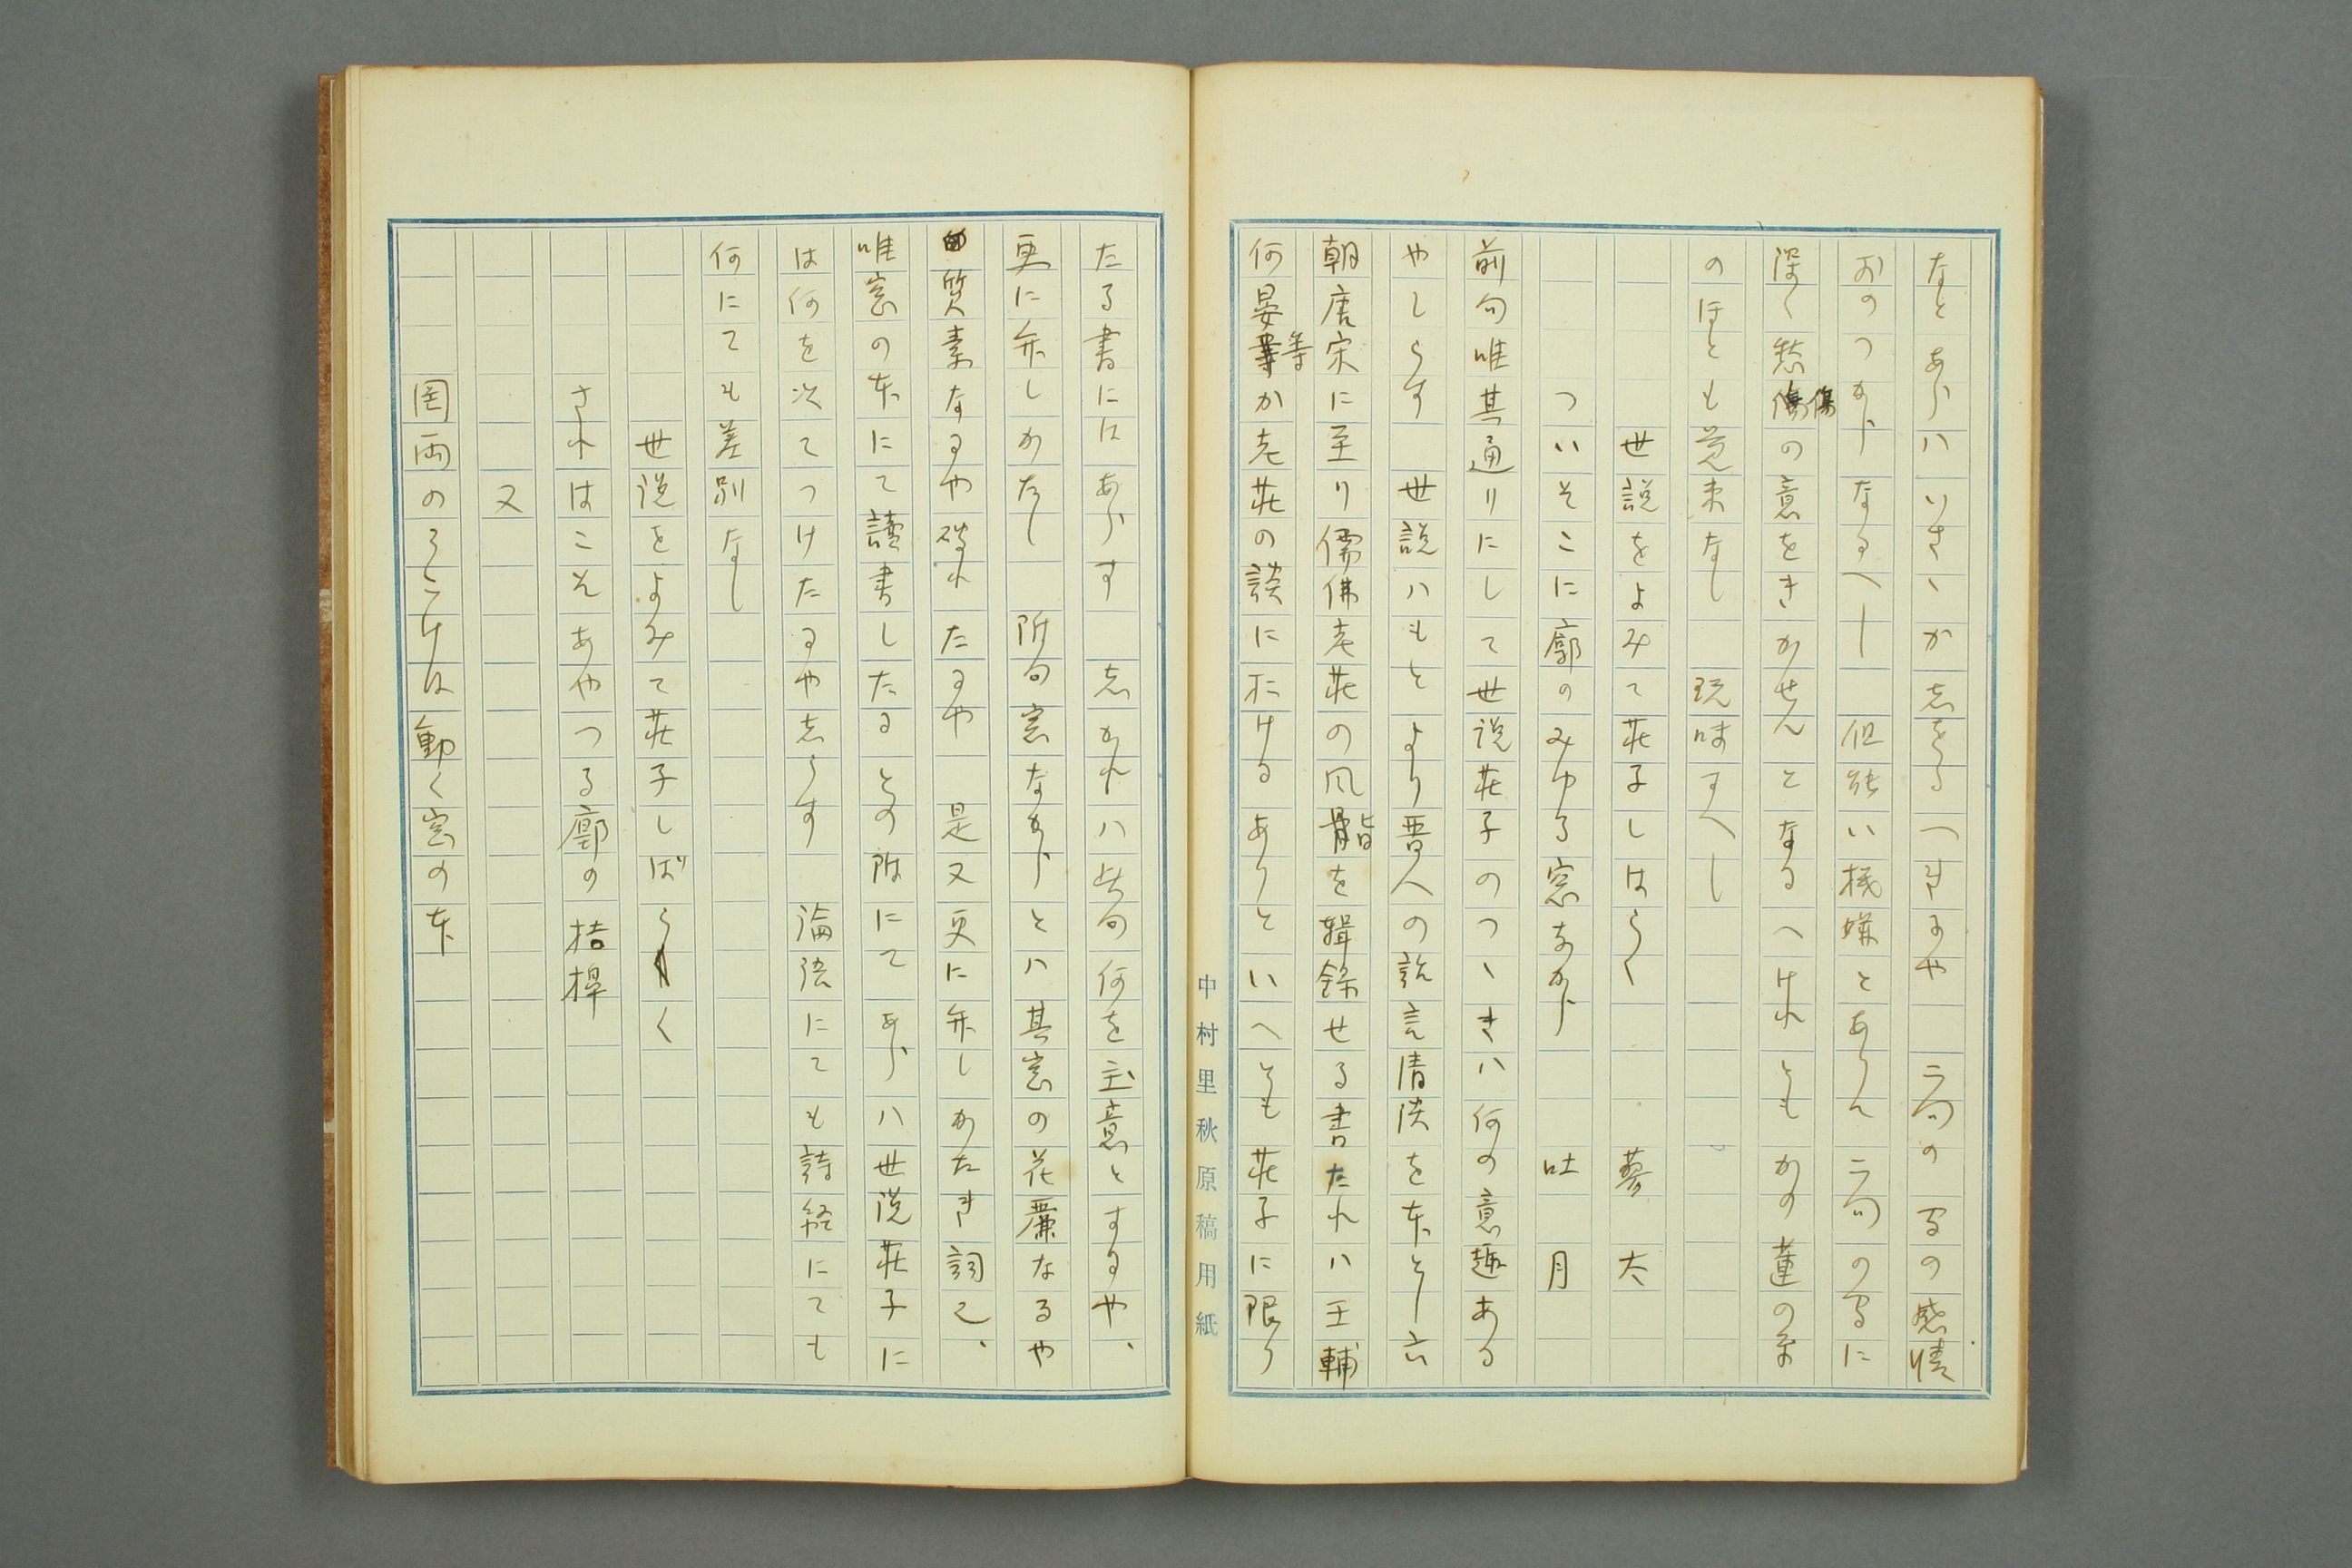 なとあらハいさゝか志をるへきにや　二句の間の感情
おのつからなるへし　但能い機嫌とあらん二句の間に
深く愁傷の意をきかせんとなるへけれともかの蓮の糸
のほとも覚束なし　玩味すへし
世説をよみて荘子しはらく　蓼太
ついそこに廓のみゆる窓なから　吐月
前句唯其通りにして世説荘子のつゝきハ何の意趣ある
やしらす　世説ハもとより晋人の説言清淡を本とし六
朝唐宋に至り儒佛老荘の風骨皆を輯録せる書なれハ王輔
何晏等か老荘の談に於けるありといへとも荘子に限り
中村里秋原稿用紙
たる書にはあらす　志かれハ此句何を主意とするや、
更に弁しかたし　附句窓なからとハ其窓の花麗なるや
質素なるや破れたるや　是又更に弁しかたき詞也、
唯窓の本にて讀書したるとの附にてあらハ世説荘子に
は何を次てつけたるや志らす　論語にても詩経にても
何にても差別なし
世説をよみて荘子しばらく
されはこそあやつる廓の桔槹
又
罔両のうこけは動く窓の本